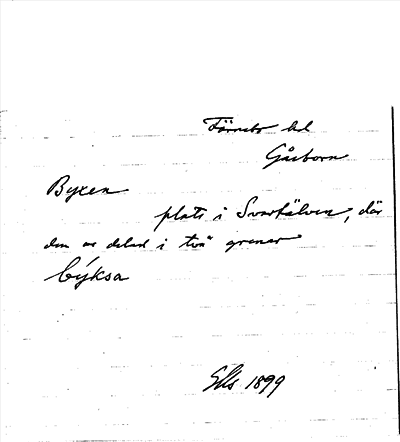 Färnebo hd
Gåsborn
Byxen
plats i Svartälven, där
den är delad i två grenar
býksa
1899